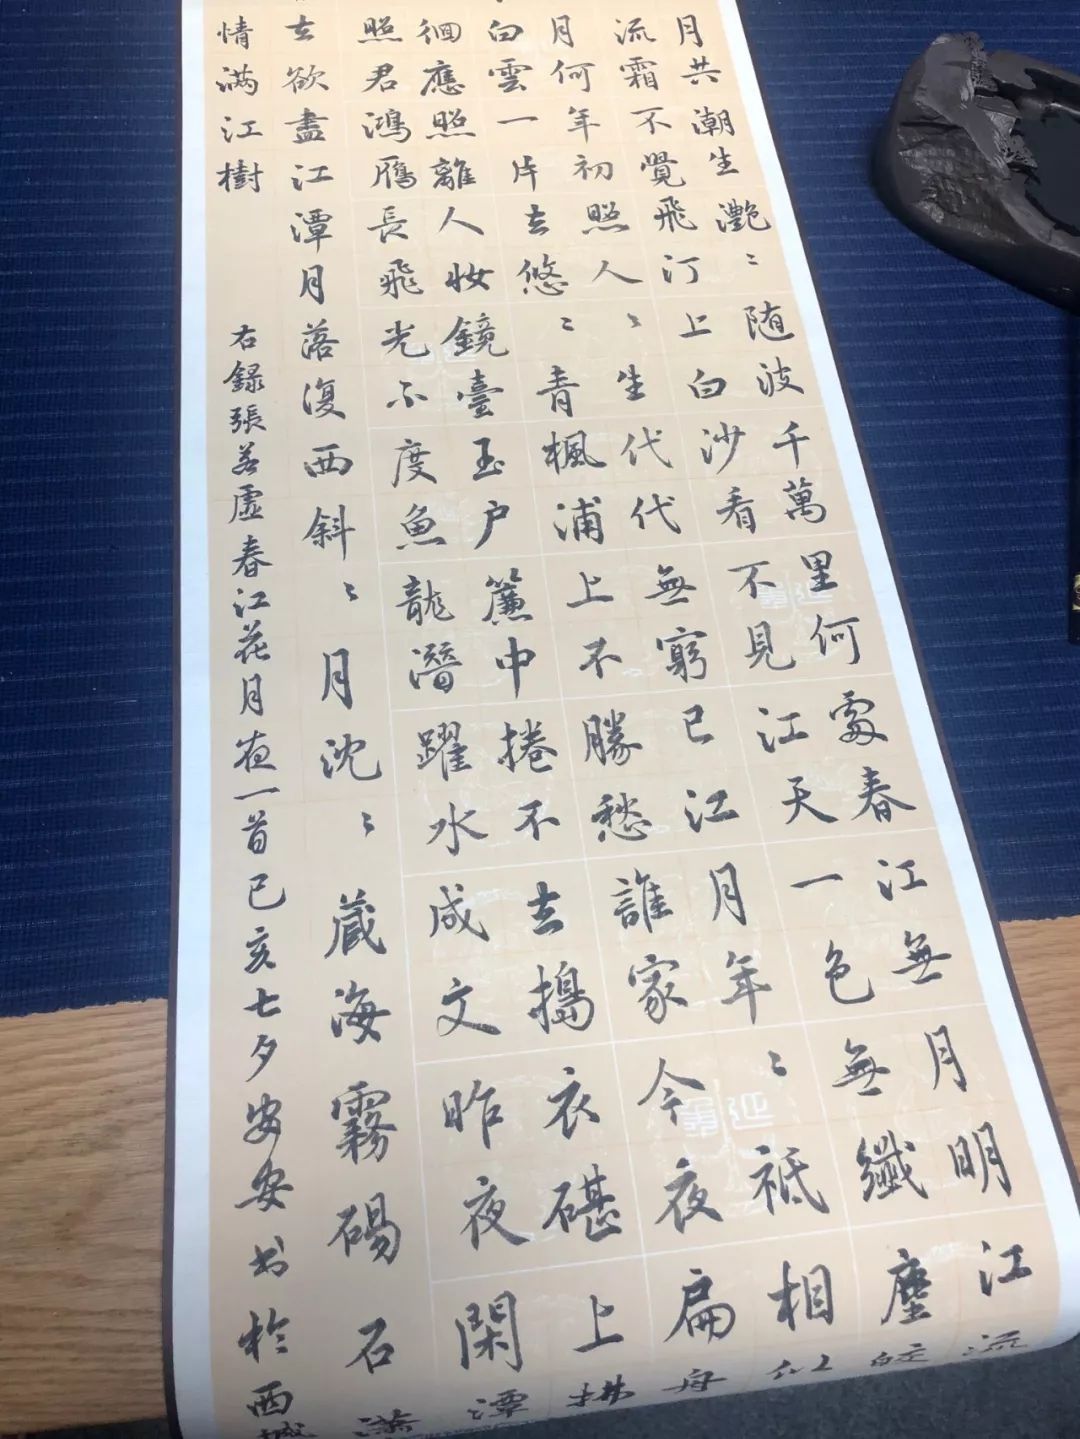 月共潮生灔〻随波千萬里何處春江無月明江流
流霜不覺飛汀上白沙看不見江天一色無纖塵皎
月何年初照人〻生代代無窮已江月年〻祗相似
白雲一片去悠〻青楓浦上不勝愁誰家今夜扁舟
徊應照離人妝鏡臺玉户簾中捲不去搗衣碪上拂
照君鴻鴈長飛光不度魚龍潛躍水成文昨夜閑潭
去欲盡江潭月落復西斜〻月沈〻藏海霧碣石瀟
情满江樹
右錄張若虛春江花月夜一首己亥七夕安安书於西城